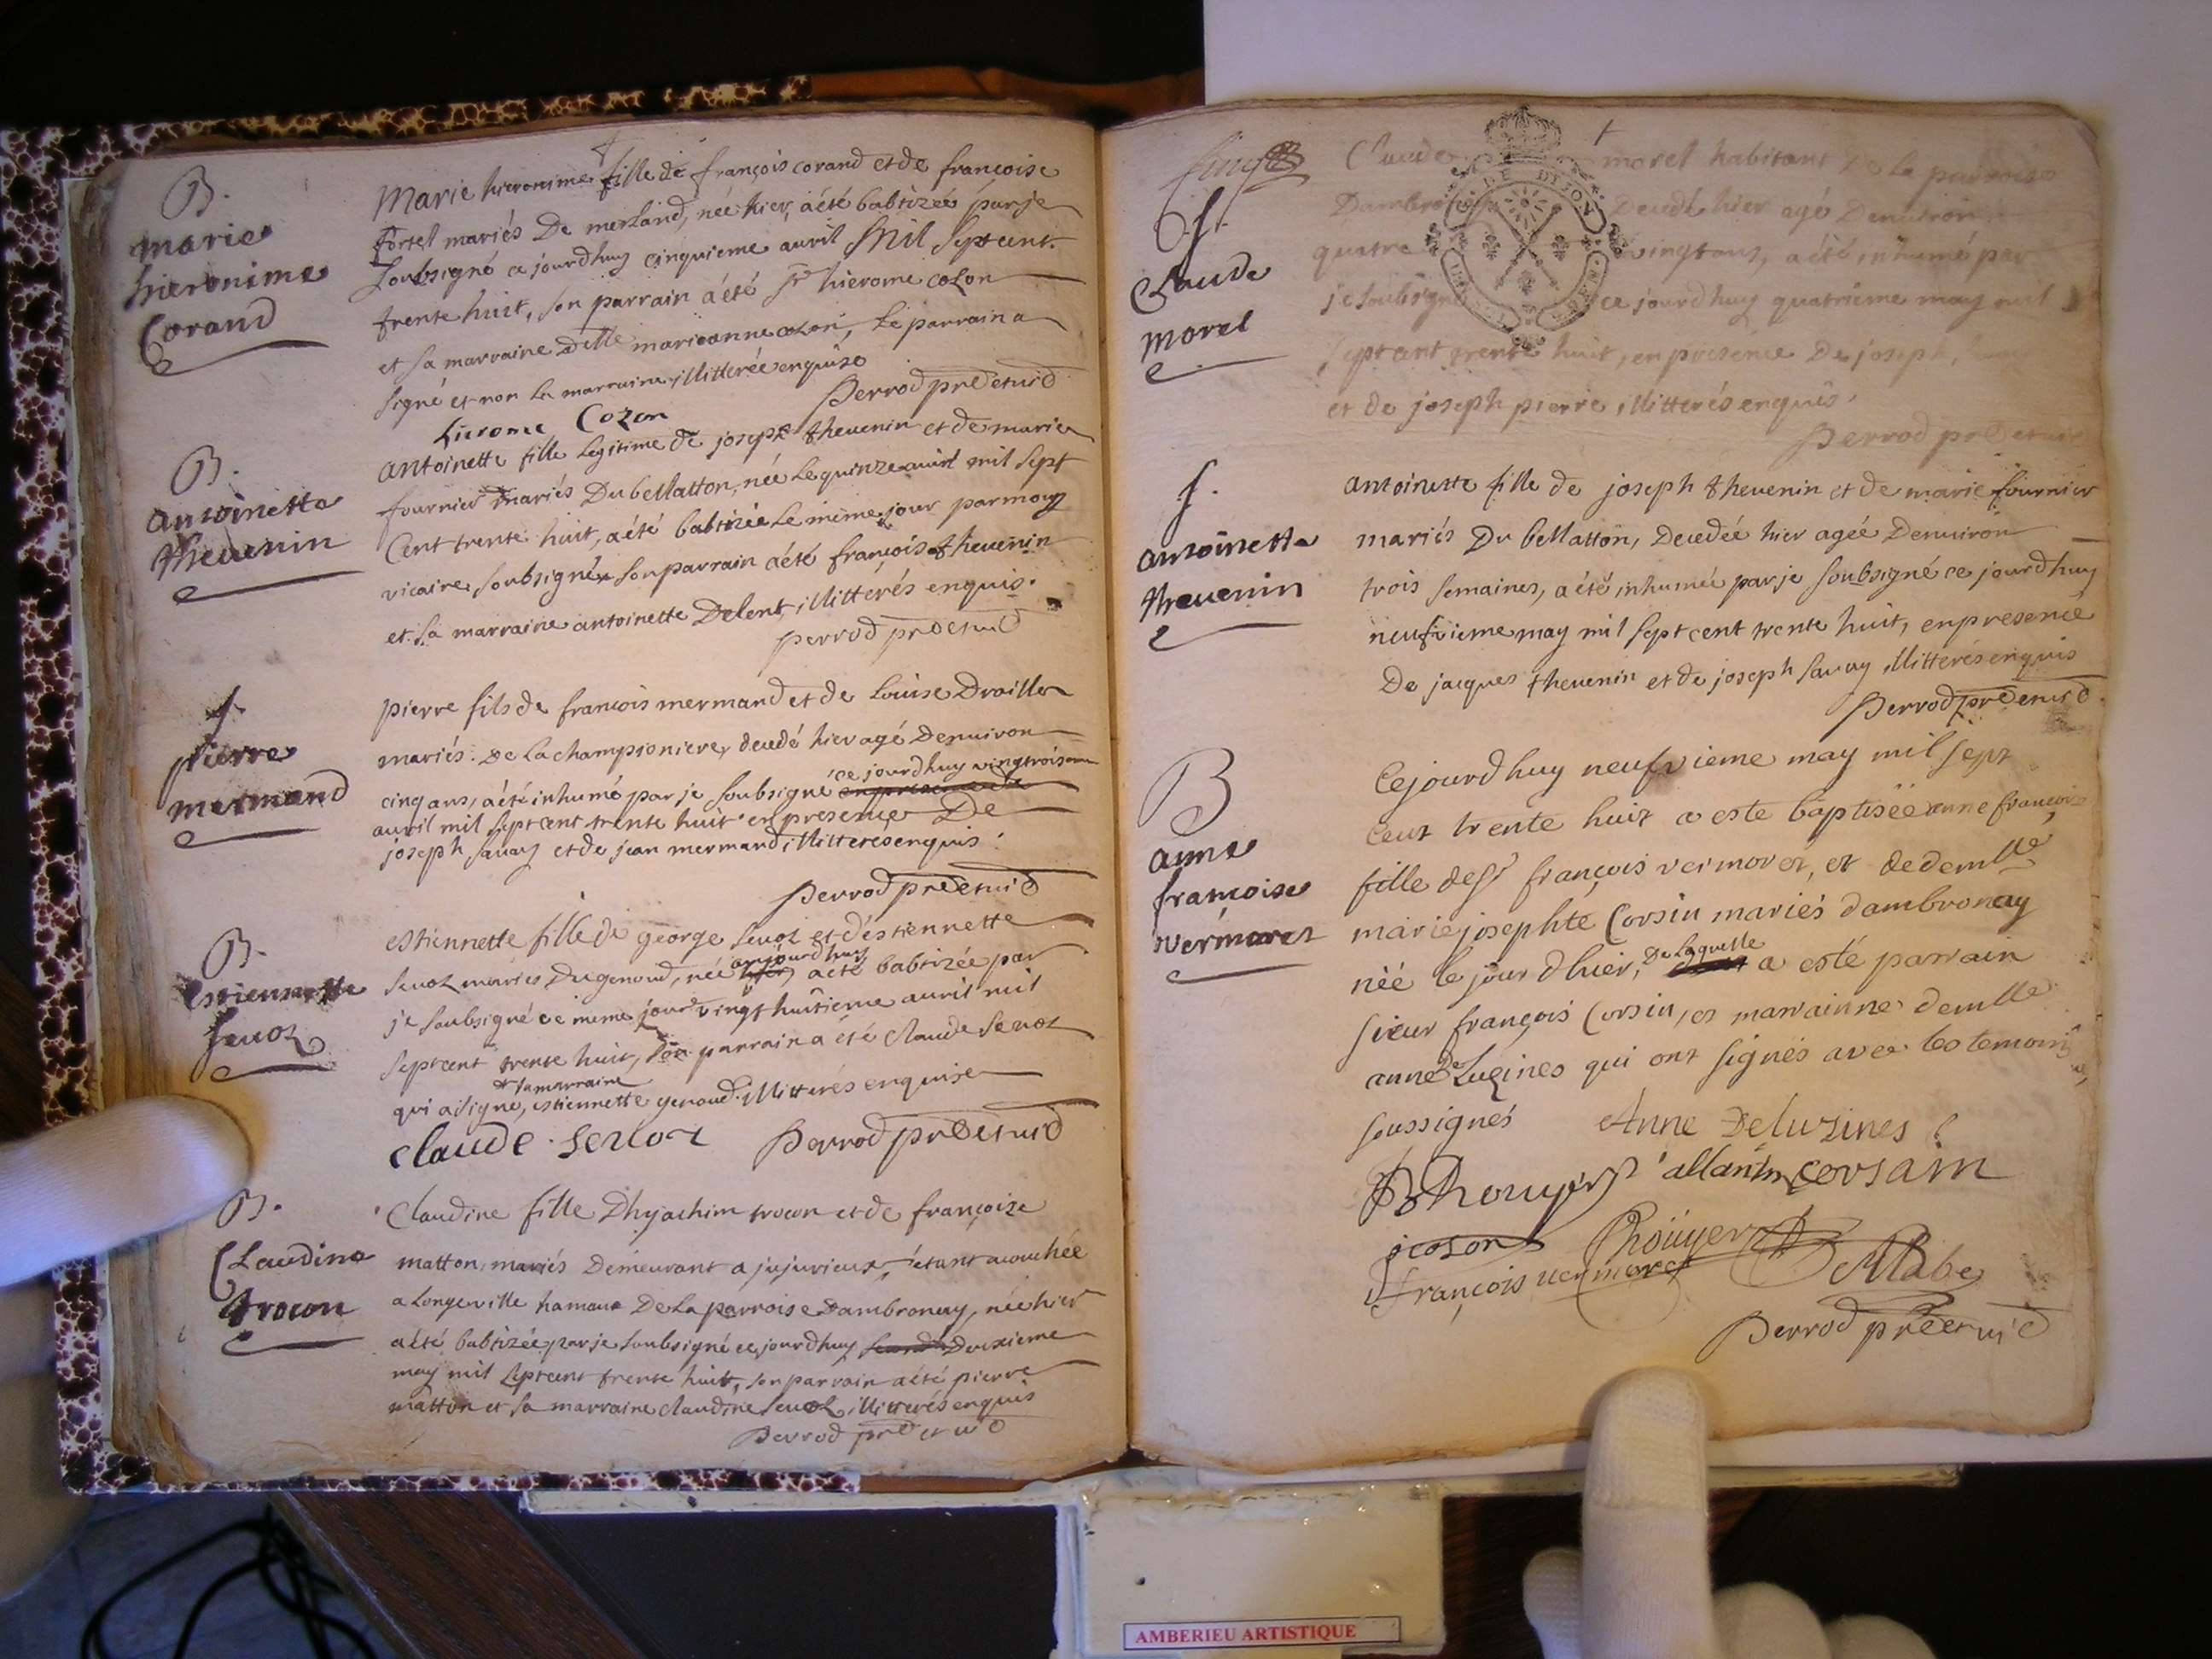 B.
marie
hieronime
Corand
Marie hieronime fille de françois corand et de francoise
fortel mariés De merland, née hier, a été babtizée par je
soubsigné ce jourdhuy cinquieme auril mil septcent
trente huit, son parrain a été sr hierome cozon
et sa marraine delle marieanne cozon, le parrain a
signé et non la marraine illitterée enquise
hierome Cozon
Perrod prê et vic
B.
antoinette
thevenin
antoinette fille legitime de joseph thevenin et de marie
fournier mariés Du bellatton, née le quinze auril mil sept
Cent trente huit, a été babtizée le même jour par moy
vicaire soubsigné son parrain a été françois thevenin
et sa marraine antoinette Delent, illittérés enquis.
perrod prê et vic
f.
pierre
mermand
pierre fils de francois mermand et de Louise Drailler
mariés De la championiere, decedé hier agé Denuiron
cinq ans, a été inhumé par je soubsigné ce jourdhuy vingtroisieme
auril mil septcent trente huit en presence De
joseph sauay et de jean mermand, illitteres enquis.
Perrod prê et vic
B.
estiennette
seuoz
estiennette fille de george seuoz et d'estiennette
seuoz mariés Du genoud, née aujourdhuy, a été babtizée par
je soubsigné ce meme jour vingt huitieme auril mil
septcent trente huit, son parrain a été claude seuoz
qui a signé, et sa marraine estiennette genoud illitterés enquise
claude seuoz
Perrod prê et vic
B.
Claudine
trocon
Claudine fille Dhyachim trocon et de françoise
matton, mariés Demeurant a jujurieux, étant acouchée
a Longeville hamaux De la parroise Dambronay, née hier
a été babtizée par je soubsigné ce jourdhuy Deuxieme
may mil septcent trente huit, son parrain a été pierre
matton et sa marraine claudine seuoz, illitterés enquis
Perrod prê et vic
f.
Claude
morel
Claude morel habitant De la parroise
Dambronay Decedé hier agé Denuiron
quatre vingt ans, a été inhumé par
je soubsigné ce jourdhuy quatrieme may mil
septcent trente huit, en presence De joseph
et de joseph pierre illitterés enquis.
Perrod prê et vic
f.
antoinette
thevenin
antoinette fille de joseph thevenin et de marie fournier
mariés Du bellatton, Decedée hier agée Denuiron
trois semaines, a été inhumée par je soubsigné ce jourdhuy
neufvieme may mil sept cent trente huit, en presence
De jacques thevenin et de joseph sauay illitterés enquis
Perrod prê et vic
B
anne
francoise
vermorez
Cejourdhuy neufvieme may mil sept
Cent trente huit a esté baptisée anne francoise
fille de sr françois vermorez, et de demlle
marie josephte Corsin mariés dambronay
néé le jour dhier, De laquelle a esté parrain
sieur françois Corsin, et marrainne demlle
anne De Luzines qui ont signés avec les temoins
soussignés
Anne Deluzines
Rhouyer
allantin
corsain
jcoson
Rhoüyer
françois vermorez
Perrod prê et vic
DE DIJON
AMBERIEU ARTISTIQUE